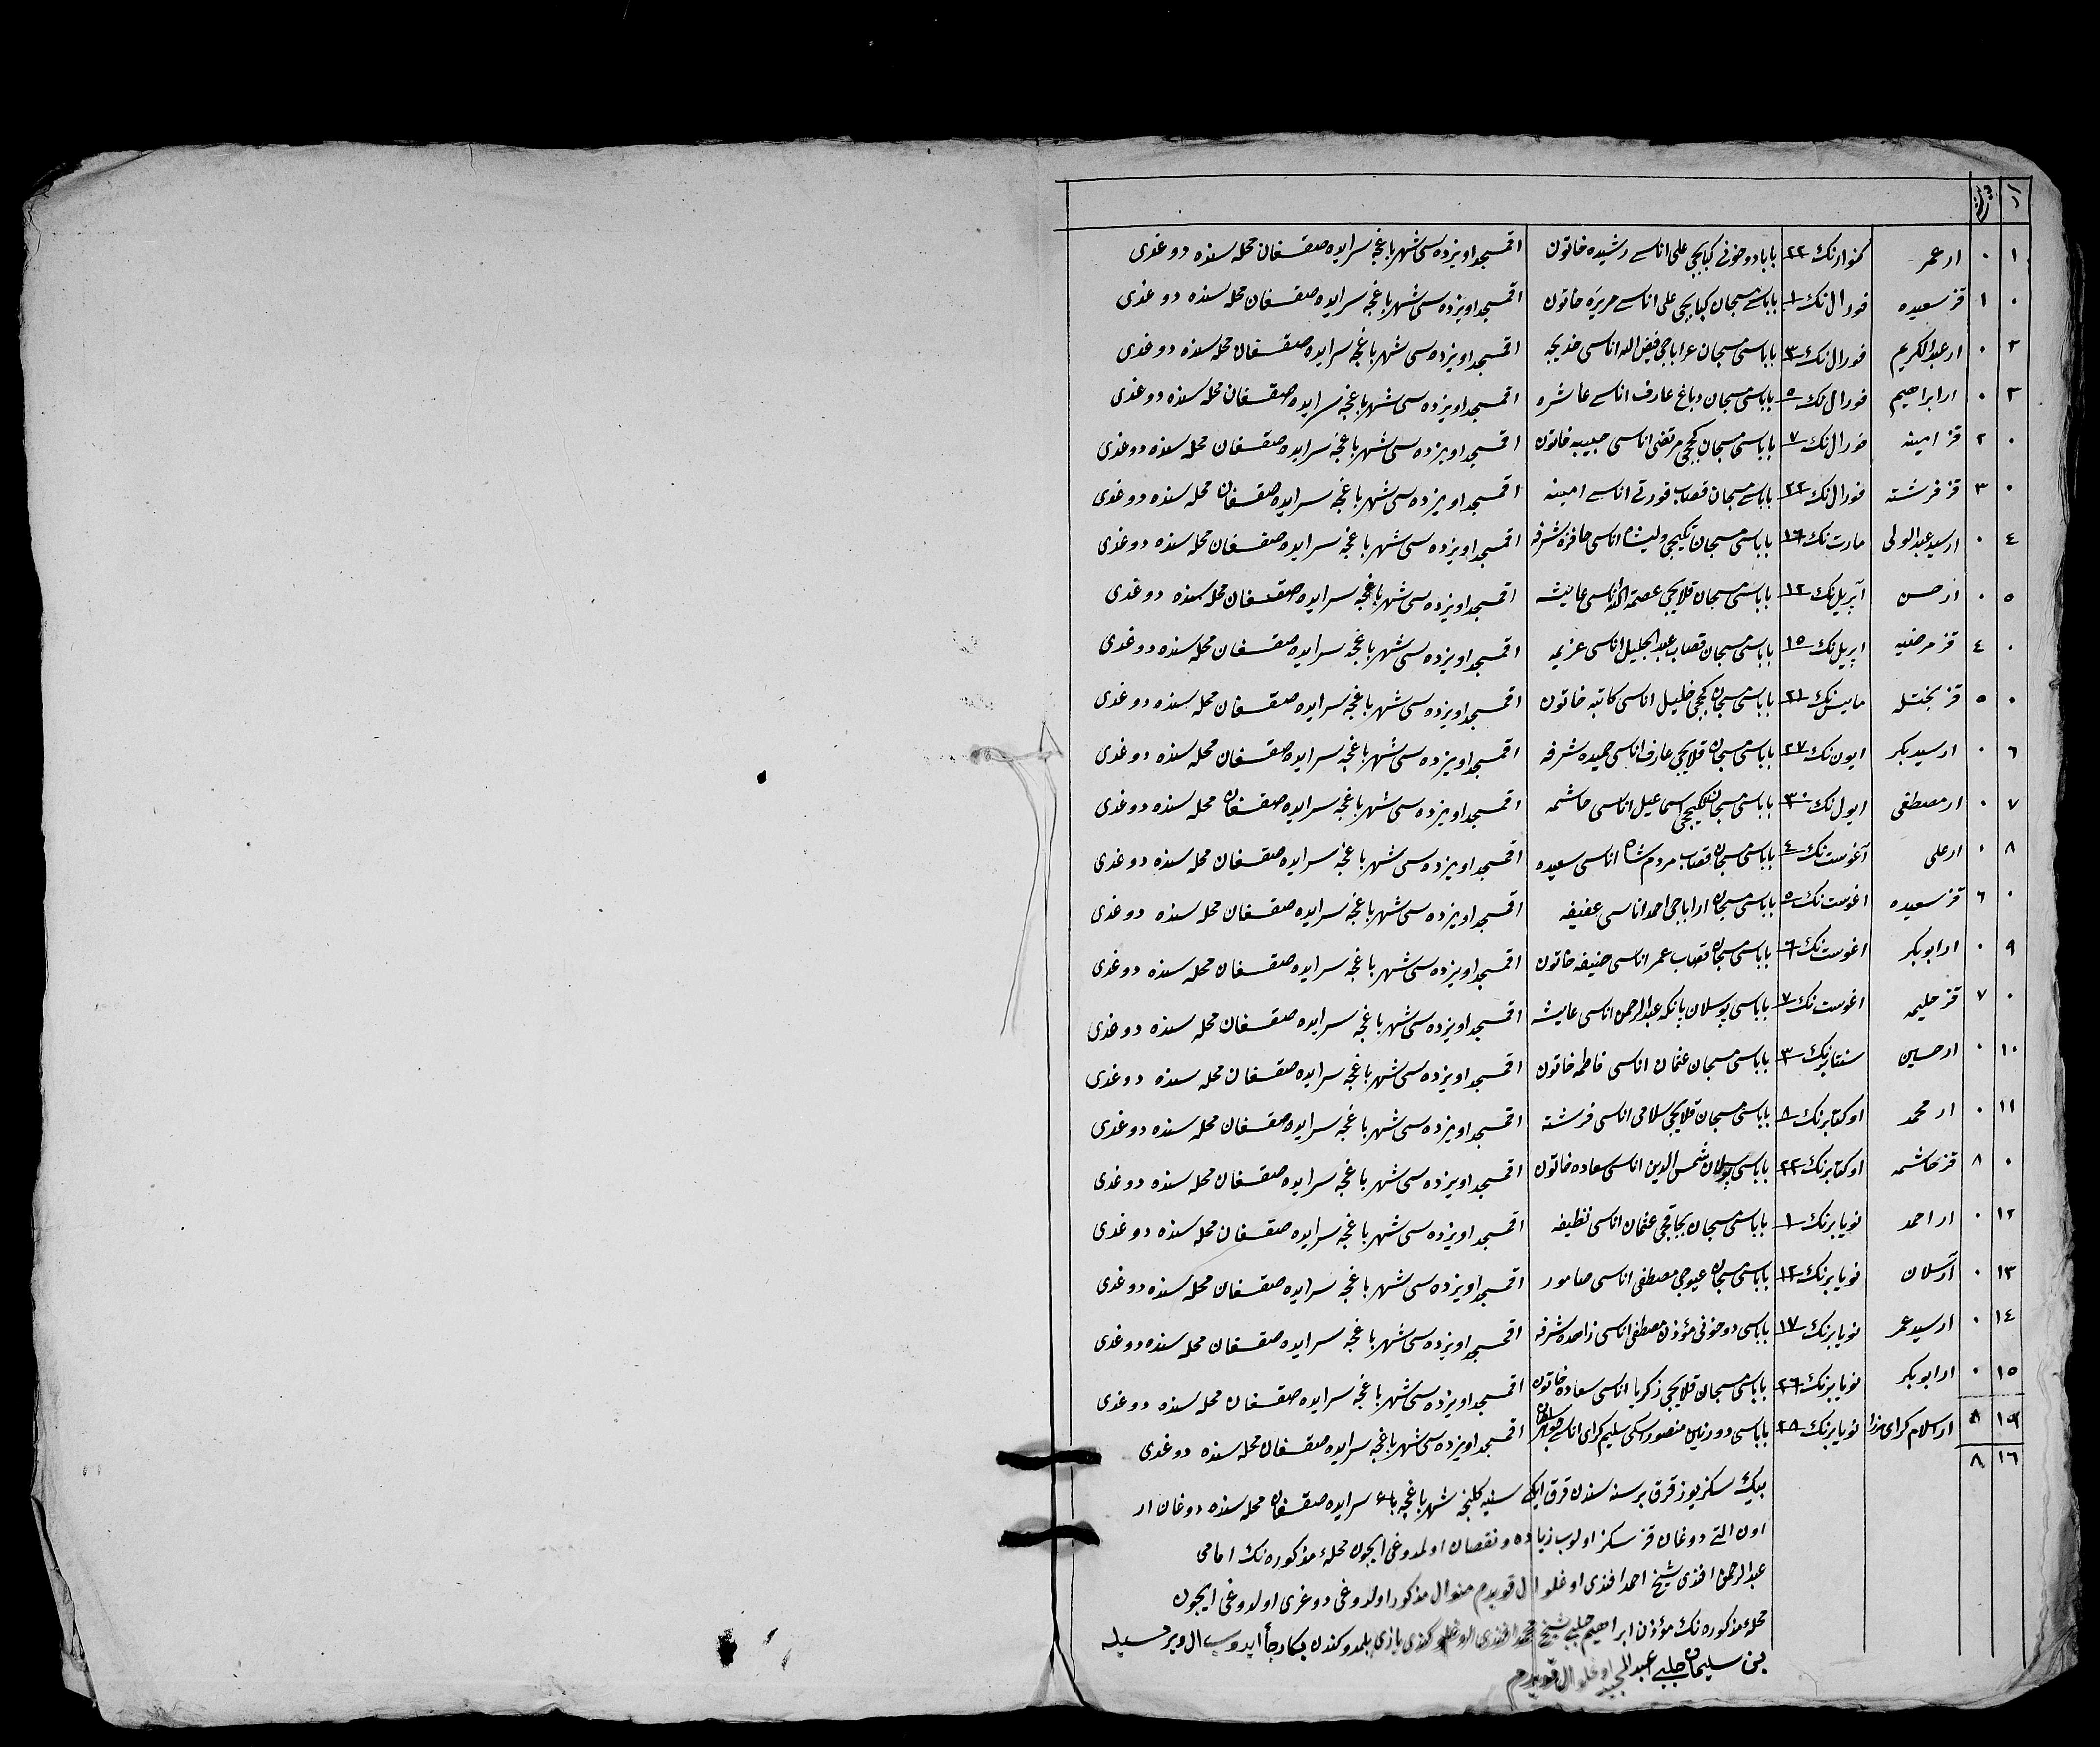 ار
١ ٠ ار عمر كنوارنك ٢٢ باباسى دوخونى كبابجى على اناسى رشيده خاتون اقمسجد اويزده سى شهر باغچه سرايده صقسغان محله سنده دوغدى
٠ ١ قز سعيده فورال نك ١ باباسى مسجان كبابجى على اناسى مريزه خاتون اقمسجد اويزده سى شهر باغچه سرايده صقسغان محله سنده دوغدى
٢ ٠ ار عبدالكريم فورال نك ٣ باباسى مسجان عراباجى فيض الله اناسى خديجه اقمسجد اويزده سى شهر باغچه سرايده صقسغان محله سنده دوغدى
٣ ٠ ار ابراهيم فورال نك ٥ باباسى مسجان دباغ عارف اناسى عاشره اقمسجد اويزده سى شهر باغچه سرايده صقسغان محله سنده دوغدى
٠ ٢ قز امينه فورال نك ٧ باباسى مسجان كجى مرتضى اناسى حبيبه خاتون اقمسجد اويزده سى شهر باغچه سرايده صقسغان محله سنده دوغدى
٠ ٣ قز فرشته فورال نك ٢٢ باباسى مسجان قصاب قورتى اناسى امينه اقمسجد اويزده سى شهر باغچه سرايده صقسغان محله سنده دوغدى
٤ ٠ ار سيد عبدالولى مارت نك ١٦ باباسى مسجان تكيجى وليشاه اناسى حافزه شرفه اقمسجد اويزده سى شهر باغچه سرايده صقسغان محله سنده دوغدى
٥ ٠ ار حسن آپريل نك ١٢ باباسى مسجان قلايجى عصمة الله اناسى عايشه اقمسجد اويزده سى شهر باغچه سرايده صقسغان محله سنده دوغدى
٠ ٤ قز مرضيه اپريل نك ١٥ باباسى مسجان قصاب عبدالجليل اناسى عزيمه اقمسجد اويزده سى شهر باغچه سرايده صقسغان محله سنده دوغدى
٠ ٥ قز بختله مايس نك ٢١ باباسى مسجان كجى خليل اناسى كاتبه خاتون اقمسجد اويزده سى شهر باغچه سرايده صقسغان محله سنده دوغدى
٦ ٠ ار سيد بكر ايون نك ٢٧ باباسى مسجان قلايجى عارف اناسى حميده شرفه اقمسجد اويزده سى شهر باغچه سرايده صقسغان محله سنده دوغدى
٧ ٠ ار مصطفى ايول نك ٣٠ باباسى مسجان تكيجى اسماعيل اناسى حاشمه اقمسجد اويزده سى شهر باغچه سرايده صقسغان محله سنده دوغدى
٨ ٠ ار على آغوست نك ٤ باباسى مسجان قصاب مردم شاه اناسى سعيده اقمسجد اويزده سى شهر باغچه سرايده صقسغان محله سنده دوغدى
٠ ٦ قز سعيده اغوست نك ٥ باباسى مسجان اراباجى احمد اناسى عفيفه اقمسجد اويزده سى شهر باغچه سرايده صقسغان محله سنده دوغدى
٩ ٠ ار ابوبكر اغوست نك ٦ باباسى مسجان قصاب عمر اناسى حنيفه خاتون اقمسجد اويزده سى شهر باغچه سرايده صقسغان محله سنده دوغدى
٠ ٧ قز حليمه اغوست نك ٧ باباسى پوسلان بانكه عبدالرحمن اناسى عايشه اقمسجد اويزده سى شهر باغچه سرايده صقسغان محله سنده دوغدى
١٠ ٠ ار حسين سنتابرنك ٣ باباسى مسجان عثمان اناسى فاطمه خاتون اقمسجد اويزده سى شهر باغچه سرايده صقسغان محله سنده دوغدى
١١ ٠ ار محمد اوكتابرنك ٨ باباسى مسجان قلايجى سلامى اناسى فرشته اقمسجد اويزده سى شهر باغچه سرايده صقسغان محله سنده دوغدى
٠ ٨ قز حاشمه اوكتابرنك ٢٢ باباسى پوسلان شمس الدين اناسى سعاده خاتون اقمسجد اويزده سى شهر باغچه سرايده صقسغان محله سنده دوغدى
١٢ ٠ ار احمد نويابرنك ١ باباسى مسجان بچاقچى عثمان اناسى نظيفه اقمسجد اويزده سى شهر باغچه سرايده صقسغان محله سنده دوغدى
١٣ ٠ ارسلان نويابرنك ١٢ باباسى مسجان عيوجى مصطفى اناسى صامور اقمسجد اويزده سى شهر باغچه سرايده صقسغان محله سنده دوغدى
١٤ ٠ ار سيد عمر نويابرنك ١٧ باباسى دوخونى مؤذن مصطفى اناسى زاهده شرفه اقمسجد اويزده سى شهر باغچه سرايده صقسغان محله سنده دوغدى
١٥ ٠ ار ابوبكر نويابرنك ٢٦ باباسى مسجان قلايجى زكريا اناسى سعاده خاتون اقمسجد اويزده سى شهر باغچه سرايده صقسغان محله سنده دوغدى
٨ ار اسلام كراى مرزا نويابرنك ٢٨ باباسى دورنيان منصورسكى سليم كراى اناسى اقمسجد اويزده سى شهر باغچه سرايده صقسغان محله سنده دوغدى
١٦ ٨
بيك سكز يوز قرق بر سنه سندن قرق ايكى سنيه كلينجه شهر باغچه سرايده صقسغان محله سنده دوغان ار
اون التى دوغان قز سكز اولوب زياده و نقصان اولمدوغى ايچون محلۀ مذكوره نك امامى
عبدالرحمن افندى شيخ احمد افندى اوغلو ال قويدم منوال مذكور اولدوغى دوغرى اولدوغى ايچون
محلۀ مذكوره نك مؤذن ابراهيم چلبى شيخ محمد افندى اوغلو كندى يازى بلمدوكندن بكا رجأ ايدوب ال ويرمسيله
بن سليمان چلبى عبدالمجيد اوغلو ال قويدم